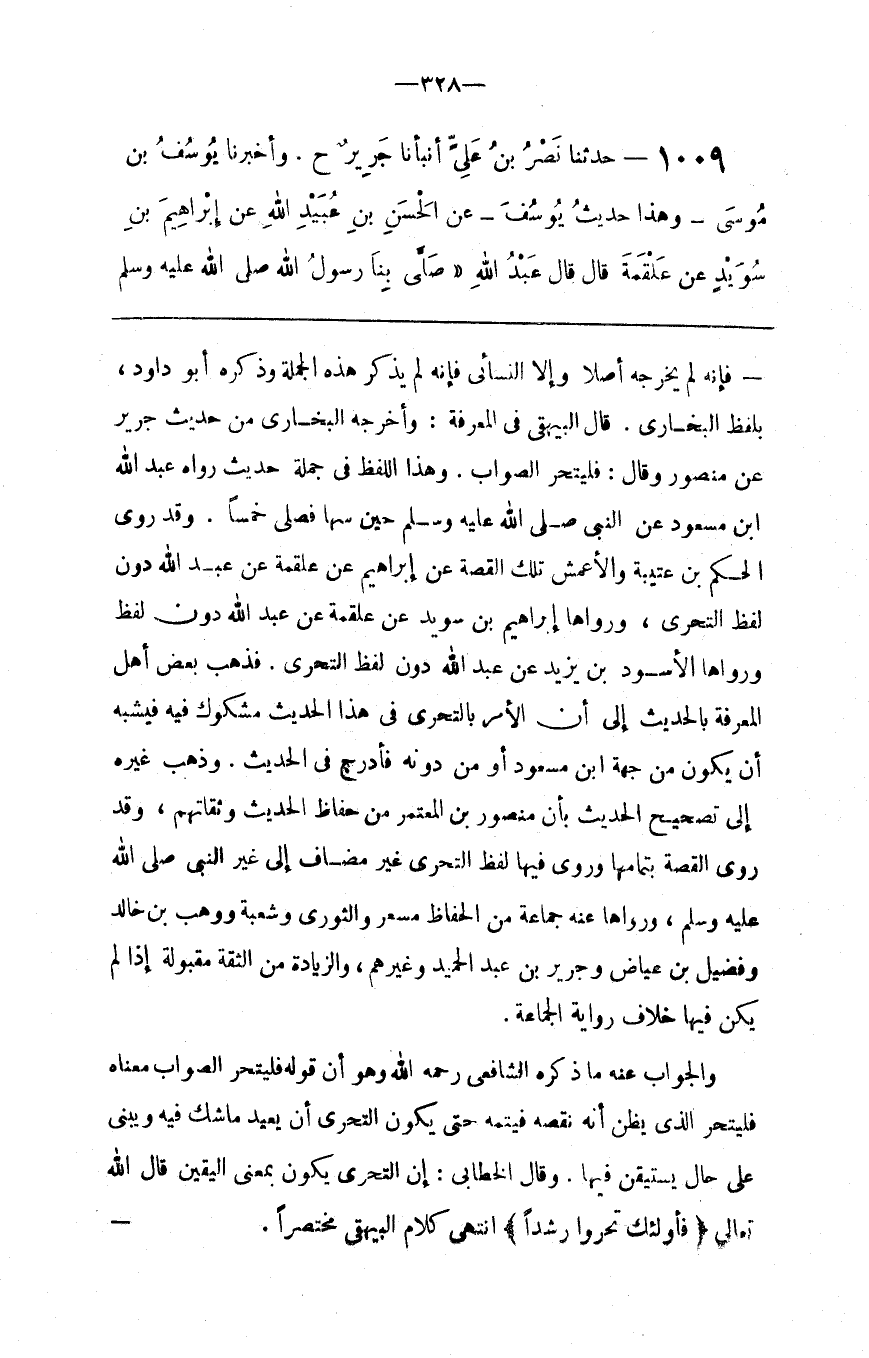 —٣٢٨—
١٠٠٩ — حدثنا نَصْرُ بنُ عَلِيٍّ أنبأنا جَرِيرٌ ح . وأخبرنا يُوسُفُ بن
مُوسَى – وهذا حديثُ يُوسُفَ – عن الْحَسَنِ بنِ عُبَيْدِ اللهِ عن إِبْرَاهِيمَ بنِ
سُوَيْدٍ عن عَلْقَمَةَ قال قال عَبْدُ اللهِ « صَلَّى بِنَا رسولُ الله صلى الله عليه وسلم
— فإنه لم يخرجه أصلا وإلا النسائى فإنه لم يذكر هذه الجملة وذكره أبو داود ،
بلفظ البخارى . قال البيهقى فى المعرفة : وأخرجه البخارى من حديث جرير
عن منصور وقال : فليتحر الصواب . وهذا اللفظ فى جملة حديث رواه عبد الله
ابن مسعود عن النبى صلى الله عليه وسلم حين سها فصلى خمساً . وقد روى
الحكم بن عتيبة والأعمش تلك القصة عن إبراهيم عن علقمة عن عبد الله دون
لفظ التحرى ، ورواها إبراهيم بن سويد عن علقمة عن عبد الله دون لفظ
ورواها الأسود بن يزيد عن عبد الله دون لفظ التحرى . فذهب بعض أهل
المعرفة بالحديث إلى أن الأمر بالتحرى فى هذا الحديث مشكوك فيه فيشبه
أن يكون من جهة ابن مسعود أو من دونه فأدرج فى الحديث . وذهب غيره
إلى تصحيح الحديث بأن منصور بن المعتمر من حفاظ الحديث وثقاتهم ، وقد
روى القصة بتمامها وروى فيها لفظ التحرى غير مضاف إلى غير النبى صلى الله
عليه وسلم ، ورواها عنه جماعة من الحفاظ مسعر والثورى وشعبة ووهب بن خالد
وفضيل بن عياض وجرير بن عبد الحميد وغيرهم ، والزيادة من الثقة مقبولة إذا لم
يكن فيها خلاف رواية الجماعة .
والجواب عنه ما ذكره الشافعى رحمه الله وهو أن قوله فليتحر الصواب معناه
فليتحر الذى يظن أنه نقصه فيتمه حتى يكون التحرى أن يعيد ماشك فيه ويبنى
على حال يستيقن فيها . وقال الخطابى : إن التحرى يكون بمعنى اليقين قال الله
تعالى ﴿ فأولئك تحروا رشداً ﴾ انتهى كلام البيهقى مختصراً . —